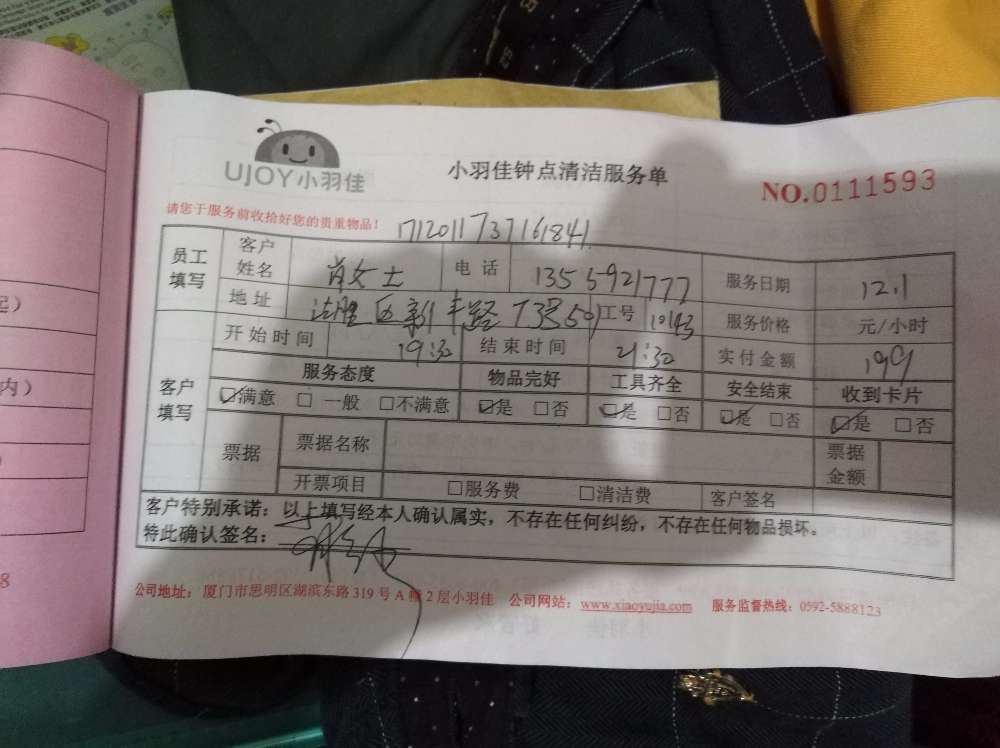 UJOY小羽佳
小羽佳钟点清洁服务单
NO.0111593
请您于服务前收拾好您的贵重物品!
71201173716841
员工填写 客户姓名 肖女士 电话 1355921777 服务日期 12.1
地址 区新丰路 工号 10143 服务价格 元/小时
客户填写 开始时间 19:30 结束时间 21:30 实付金额 199
服务态度 物品完好 工具齐全 安全结束 收到卡片
☑满意 □一般 □不满意 ☑是 □否 ☑是 □否 ☑是 □否 ☑是 □否
票据 票据名称 票据金额
开票项目 □服务费 □清洁费 客户签名
客户特别承诺:以上填写经本人确认属实,不存在任何纠纷,不存在任何物品损坏。
特此确认签名:
公司地址:厦门市思明区湖滨东路319号A幢2层小羽佳 公司网站:www.xiaoyujia.com 服务监督热线:0592-5888123
起)
内)
8